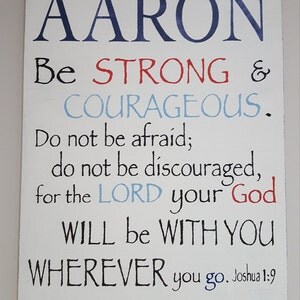 AARON
Be STRONG &
COURAGEOUS.
Do not be afraid;
do not be discouraged,
for the LORD your God
WILL be WITH YOU
WHEREVER you go. Joshua 1:9